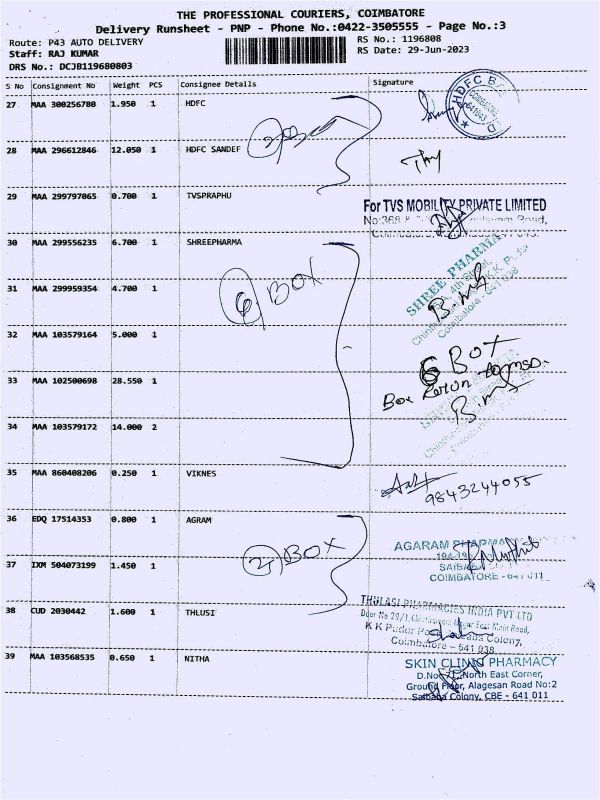 THE PROFESSIONAL COURIERS, COIMBATORE
Delivery Runsheet - PNP - Phone No.:0422-3505555 - Page No.:3
Route: P43 AUTO DELIVERY RS No.: 1196808
Staff: RAJ KUMAR RS Date: 29-Jun-2023
DRS No.: DCJB119680803
S No Consignment No Weight PCS Consignee Details Signature
27 MAA 300256780 1.950 1 HDFC
HDFC B
28 MAA 296612846 12.050 1 HDFC SANDEF
29 MAA 299797065 0.700 1 TVSPRAPHU
For TVS MOBILITY PRIVATE LIMITED
30 MAA 299556235 6.700 1 SHREEPHARMA
SHREE PHARMA
31 MAA 299959354 4.700 1
6 BOX
Coimbatore - 641 038
32 MAA 103579164 5.000 1
6 BOX
33 MAA 102500698 28.550 1
Box
34 MAA 103579172 14.000 2
35 MAA 860408206 0.250 1 VIKNES
9843244055
36 EDQ 17514353 0.800 1 AGRAM
2 BOX
AGARAM PHARMA
37 IXM 504073199 1.450 1
COIMBATORE - 641 011
38 CUD 2030442 1.600 1 THLUSI
THULASI PHARMACIES INDIA PVT LTD
Door No 29/1, East Main Road,
K K Pudur Colony,
Coimbatore - 641 038
39 MAA 103568535 0.650 1 NITHA
SKIN CLINIC PHARMACY
North East Corner,
Ground Floor, Alagesan Road No:2
Saibaba Colony, CBE - 641 011